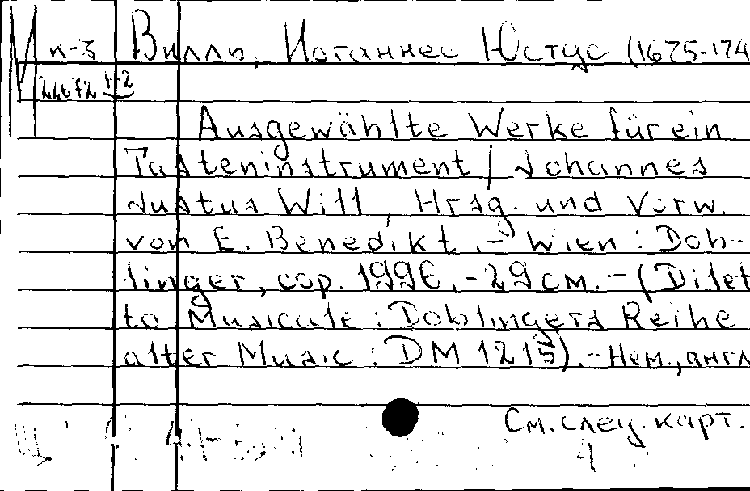 М п-3 Вилль, Иоганнес Юстус (1675-174
Ausgewählte Werke für ein
Tasteninstrument / Johannes
Justus Will, Hrsg. und Vorw.
von E. Benedikt. - Wien : Dob-
linger, cop. 1996. - 29 см. - (Dilet
to Musicale : Doblingers Reihe
alter Music : DM 1213). - Нем., англ
См. след. карт.